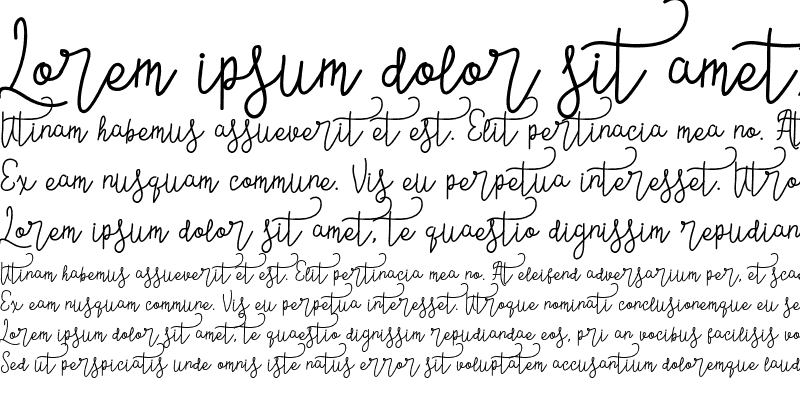 Lorem ipsum dolor sit amet,
Utinam habemus assueverit et est. Elit pertinacia mea no. At
Ex eam nusquam commune. Vis eu perpetua interesset. Utro
Lorem ipsum dolor sit amet, te quaestio dignissim repudian
Utinam habemus assueverit et est. Elit pertinacia mea no. At eleifend adversarium per, et scae
Ex eam nusquam commune. Vis eu perpetua interesset. Utroque nominati conclusionemque eu se
Lorem ipsum dolor sit amet, te quaestio dignissim repudiandae eos, pri an vocibus facilisis vo
Sed ut perspiciatis unde omnis iste natus error sit voluptatem accusantium doloremque laud